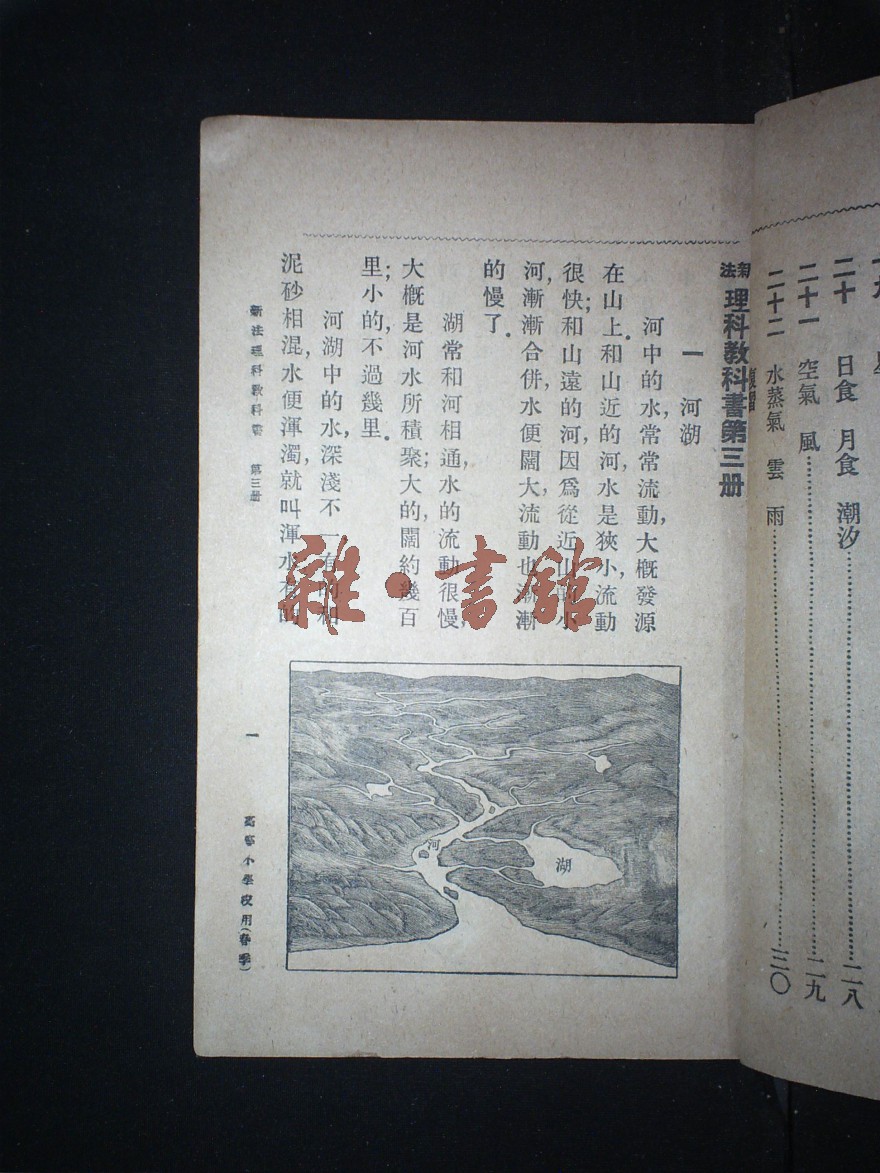 二十 日食 月食 潮汐……二八
二十一 空氣 風……二九
二十二 水蒸氣 雲 雨……三〇
新法理科教科書第三册
一 河湖
河中的水,常常流動,大概發源
在山上.和山近的河,水是狹小,流動
很快;和山遠的河,因爲從近山的小
河,漸漸合併,水便闊大,流動也漸漸
的慢了.
湖常和河相通,水的流動很慢,
大概是河水所積聚;大的闊約幾百
里;小的,不過幾里.
河湖中的水,深淺不一,有的和
泥砂相混,水便渾濁,就叫渾水,有的
新法理科教科書 第三册
一
高等小學校用(春季)
河
湖
雜·書館